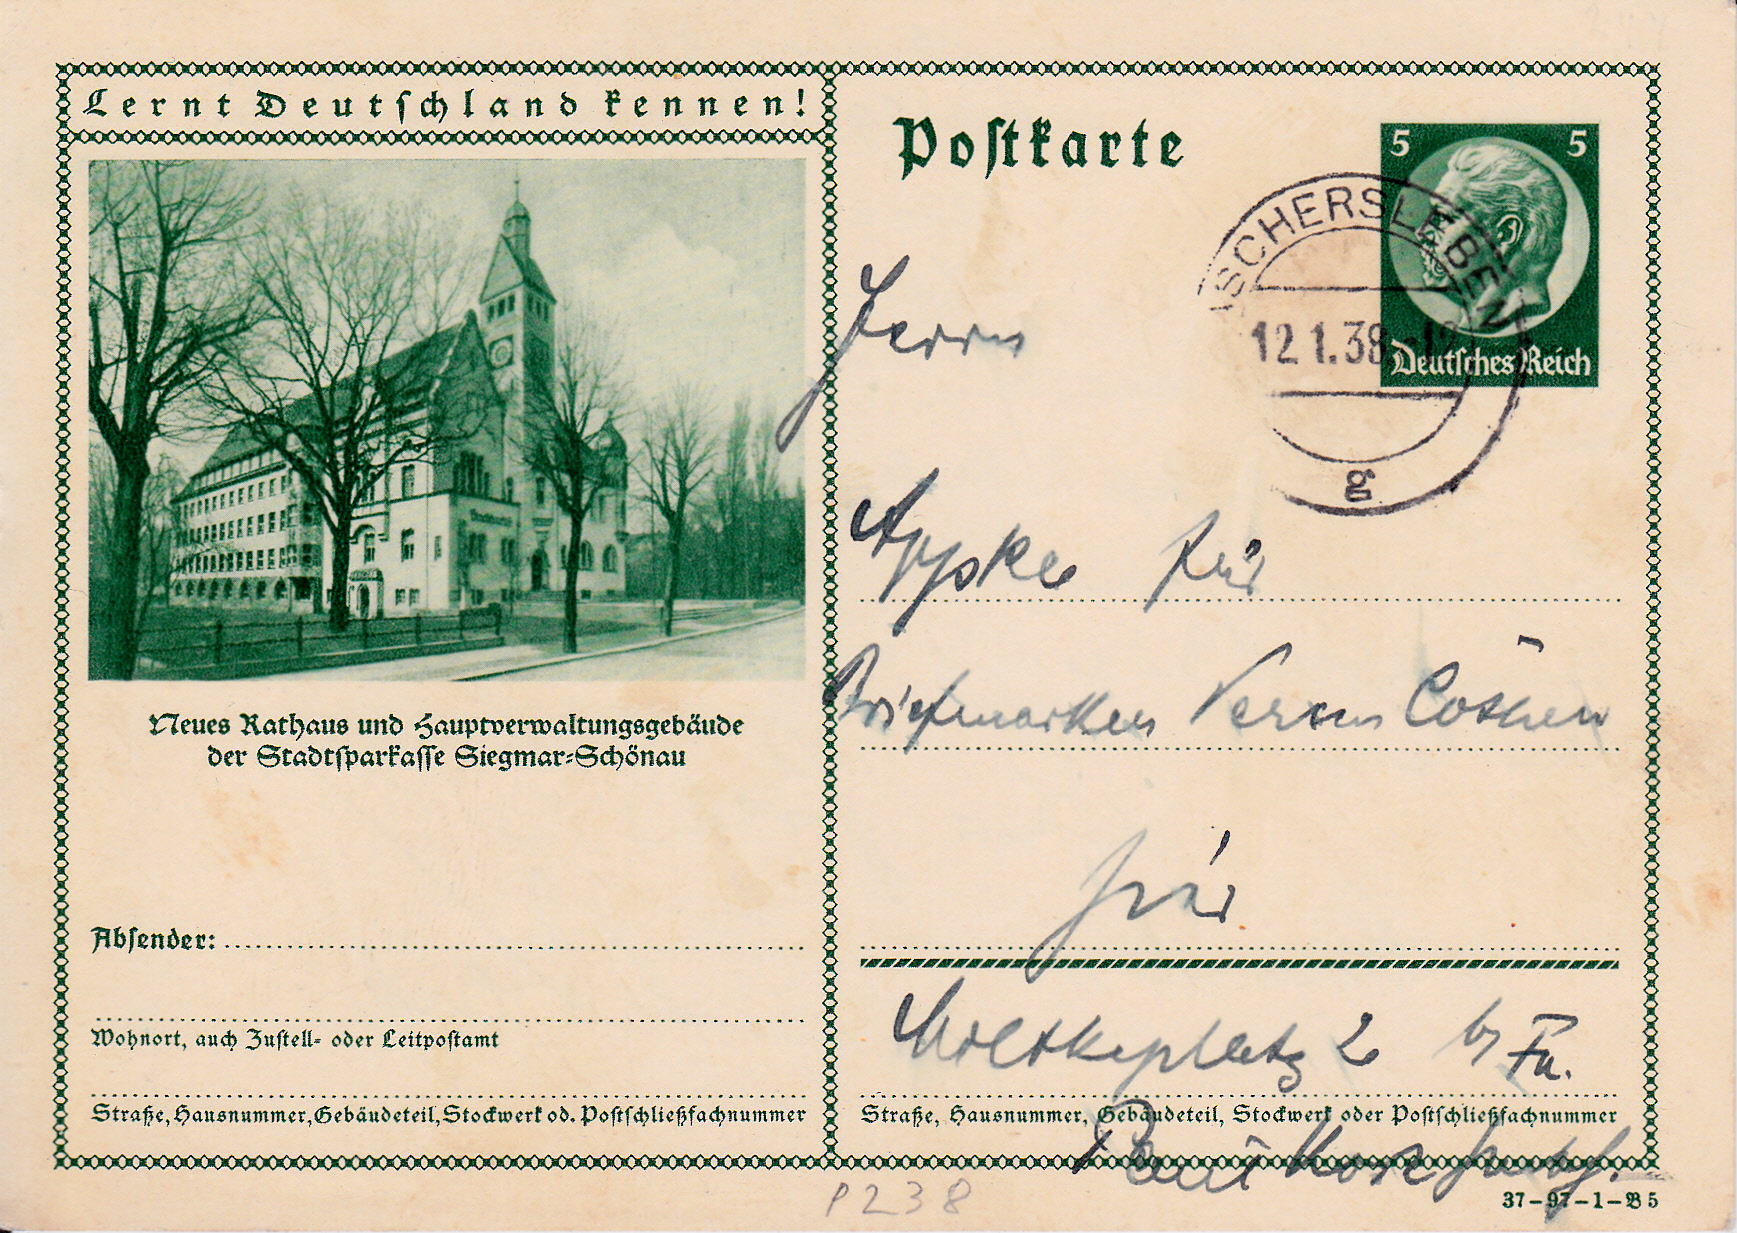 Lernt Deutschland kennen!
Neues Rathaus und Hauptverwaltungsgebäude
der Stadtsparkasse Siegmar-Schönau
Absender:
Wohnort, auch Zustell- oder Leitpostamt
Straße, Hausnummer, Gebäudeteil, Stockwerk od. Postschließfachnummer
Postkarte
5 5
Deutsches Reich
ASCHERSLEBEN
12.1.38
g
Herrn
für
Briefmarken Verein Cöthen
hier
Moltkeplatz 2 by Fa.
Straße, Hausnummer, Gebäudeteil, Stockwerk oder Postschließfachnummer
Paul
37-97-1-B5
P238